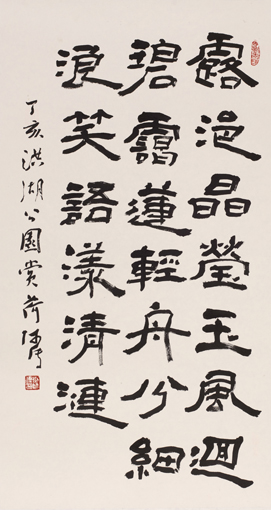 露浥晶瑩玉風迴
碧靄蓮輕舟分細
浪笑語漾清漣
丁亥洪湖公園賞荷